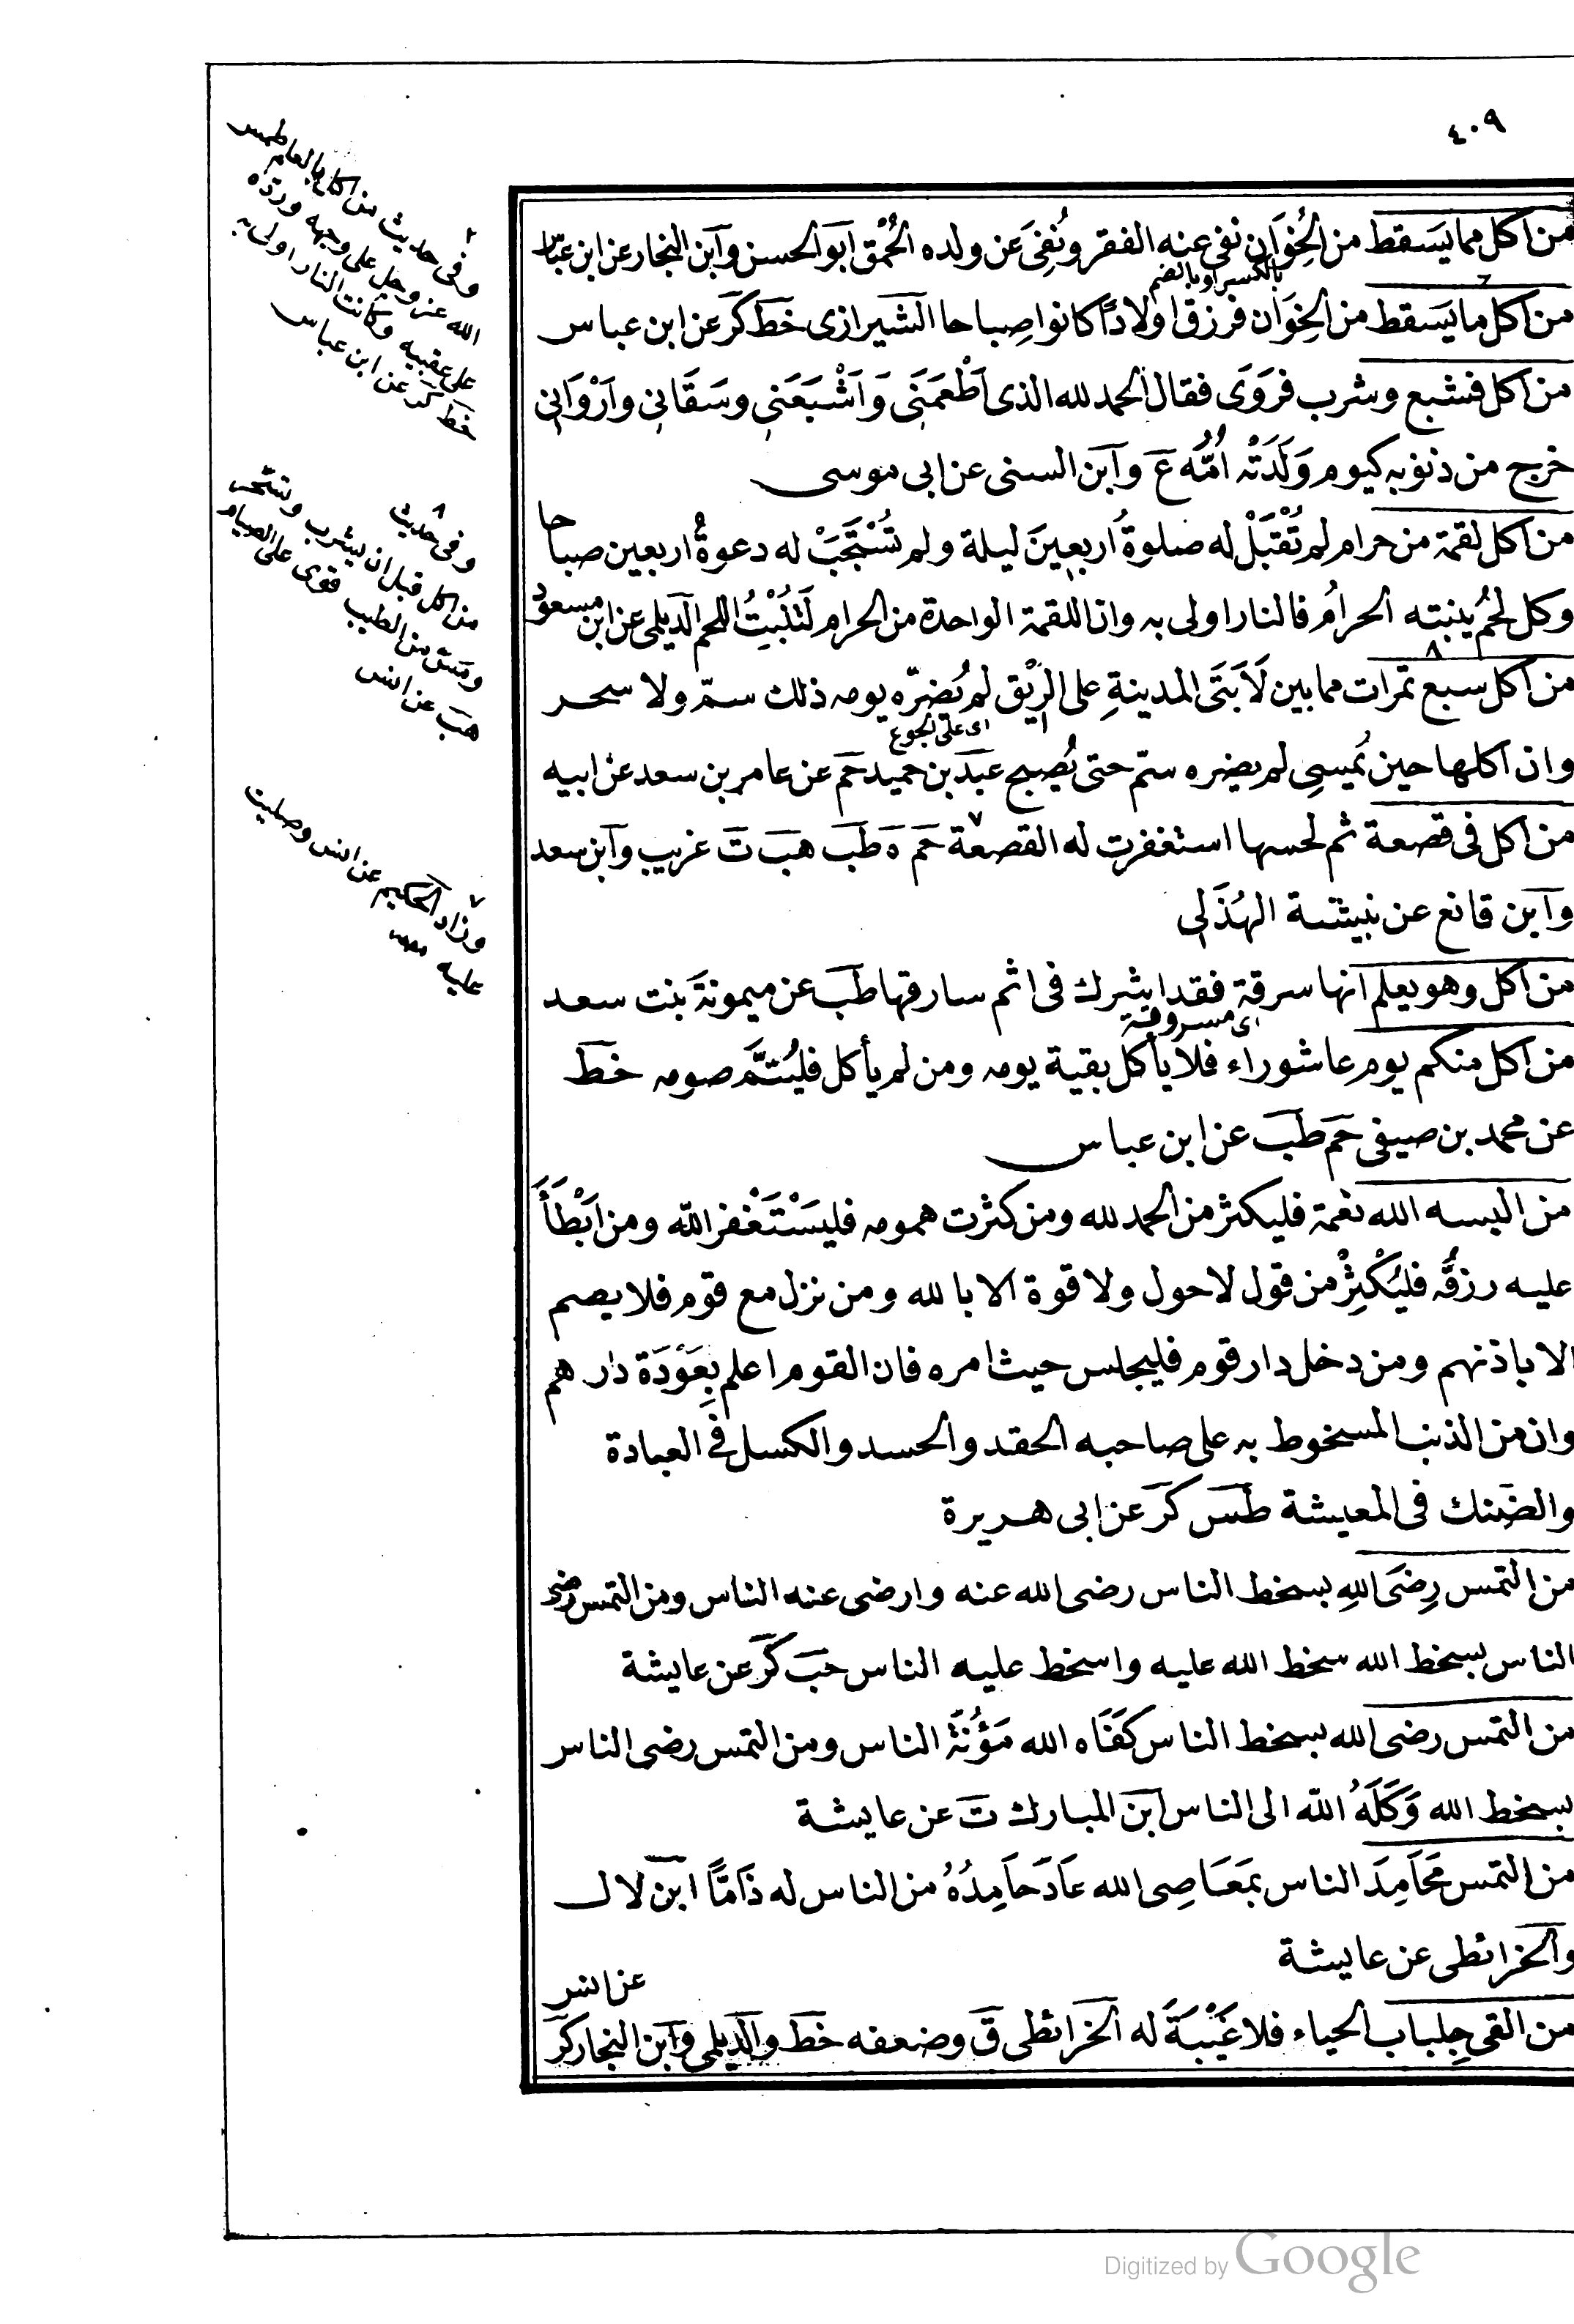 ٤٠٩
من اكل مما يسقط من الخِوَان نفى عنه الفقر ونُفِىَ عن ولده الحُمْق ابو الحسن وابن النجار عن ابن عباس
بالكسر او بالضم
من اكل ما يسقط من الخِوَان فرزق اولاداً كانوا صِباحا الشيرازى خط كر عن ابن عباس
من اكل فشبع وشرب فرَوَى فقال الحمد لله الذى اَطْعَمَنَى وَاَشْبَعَنى وسَقَانى واَرْوَانى
خرج من ذنوبه كيوم وَلَدَتْه اُمُّه ع وابن السنى عن ابى موسى
من اكل لقمة من حرام لم تُقْبَلْ له صلوةُ اربعينَ ليلة ولم تُسْتَجَبْ له دعوةُ اربعين صباحا
وكل لحمٍ ينبته الحرامُ فالنار اولى به وان اللقمة الواحدة من الحرام لَتُنْبِتُ اللحم الديلمى عن ابن مسعود
٨
من اكل سبع تمرات مما بين لاَبَتَى المدينةِ على الرِّيْق لم يُضِرّه يومه ذلك سمّ ولا سحر
اى على الجوع
وان اكلها حين يُمسِى لم يضره سمّ حتى يُصبح عبد بن حميد حم عن عامر بن سعد عن ابيه
من اكل فى قصعة ثم لحسها استغفرت له القصعة٧ حم ه طب هب ت غريب وابن سعد
وابن قانع عن نبيشة الهُذَلى
من اكل وهو يعلم انها سرقة فقد اشرك فى اثم سارقها طب عن ميمونةَ بنت سعد
اى مسروقة
من اكل منكم يوم عاشوراء فلا يأكل بقية يومه ومن لم يأكل فليُتمَّ صومه خط
عن محمد بن صيفى حم طب عن ابن عباس
من البسه الله نعمة فليكثر من الحمد لله ومن كثرت همومه فليَسْتَغْفر الله ومن اَبْطَأَ
عليه رزقُه فليُكْثِرْ من قول لا حول ولا قوة الا بالله ومن نزل مع قوم فلا يصم
الا باذنهم ومن دخل دار قوم فليجلس حيث امره فان القوم اعلم بِعَوْرَة دارهم
وان من الذنب المسخوط به على صاحبه الحقد والحسد والكسل فى العبادة
والضَنك فى المعيشة طس كر عن ابى هريرة
من التمس رِضَى اللهِ بسخط الناس رضى الله عنه وارضى عنه الناس ومن التمس رضى
الناس بسخط الله سخط الله عليه واسخط عليه الناس حب كر عن عايشة
من التمس رضى الله بسخط الناس كَفَاه الله مَؤُنَةَ الناس ومن التمس رضى الناس
بسخط الله وَكَلَهُ الله الى الناس ابن المبارك ت عن عايشة
من التمس مَحَامِدَ الناس بمَعَاصِى الله عَادَ حَامِدُهُ من الناس له ذَامًّا ابن لال
والخرائطى عن عايشة
من القى جِلباب الحياء فلا غَيْبَةَ له الخرائطى ق وضعفه خط والديلمى وابن النجار كر
عن انس
وفى حديث من اكل بالعلم طمس
الله عز وجل على وجهه ورده
على عقبيه وكانت النار اولى به
خط كر عن ابن عباس
٨
وفى حديث
من اكل قبل ان يشرب وتسحر
ومس من الطيب قوى على الصيام
هب عن انس
٧
وزاد الحكيم عن انس وصليت
عليه
Digitized by Google